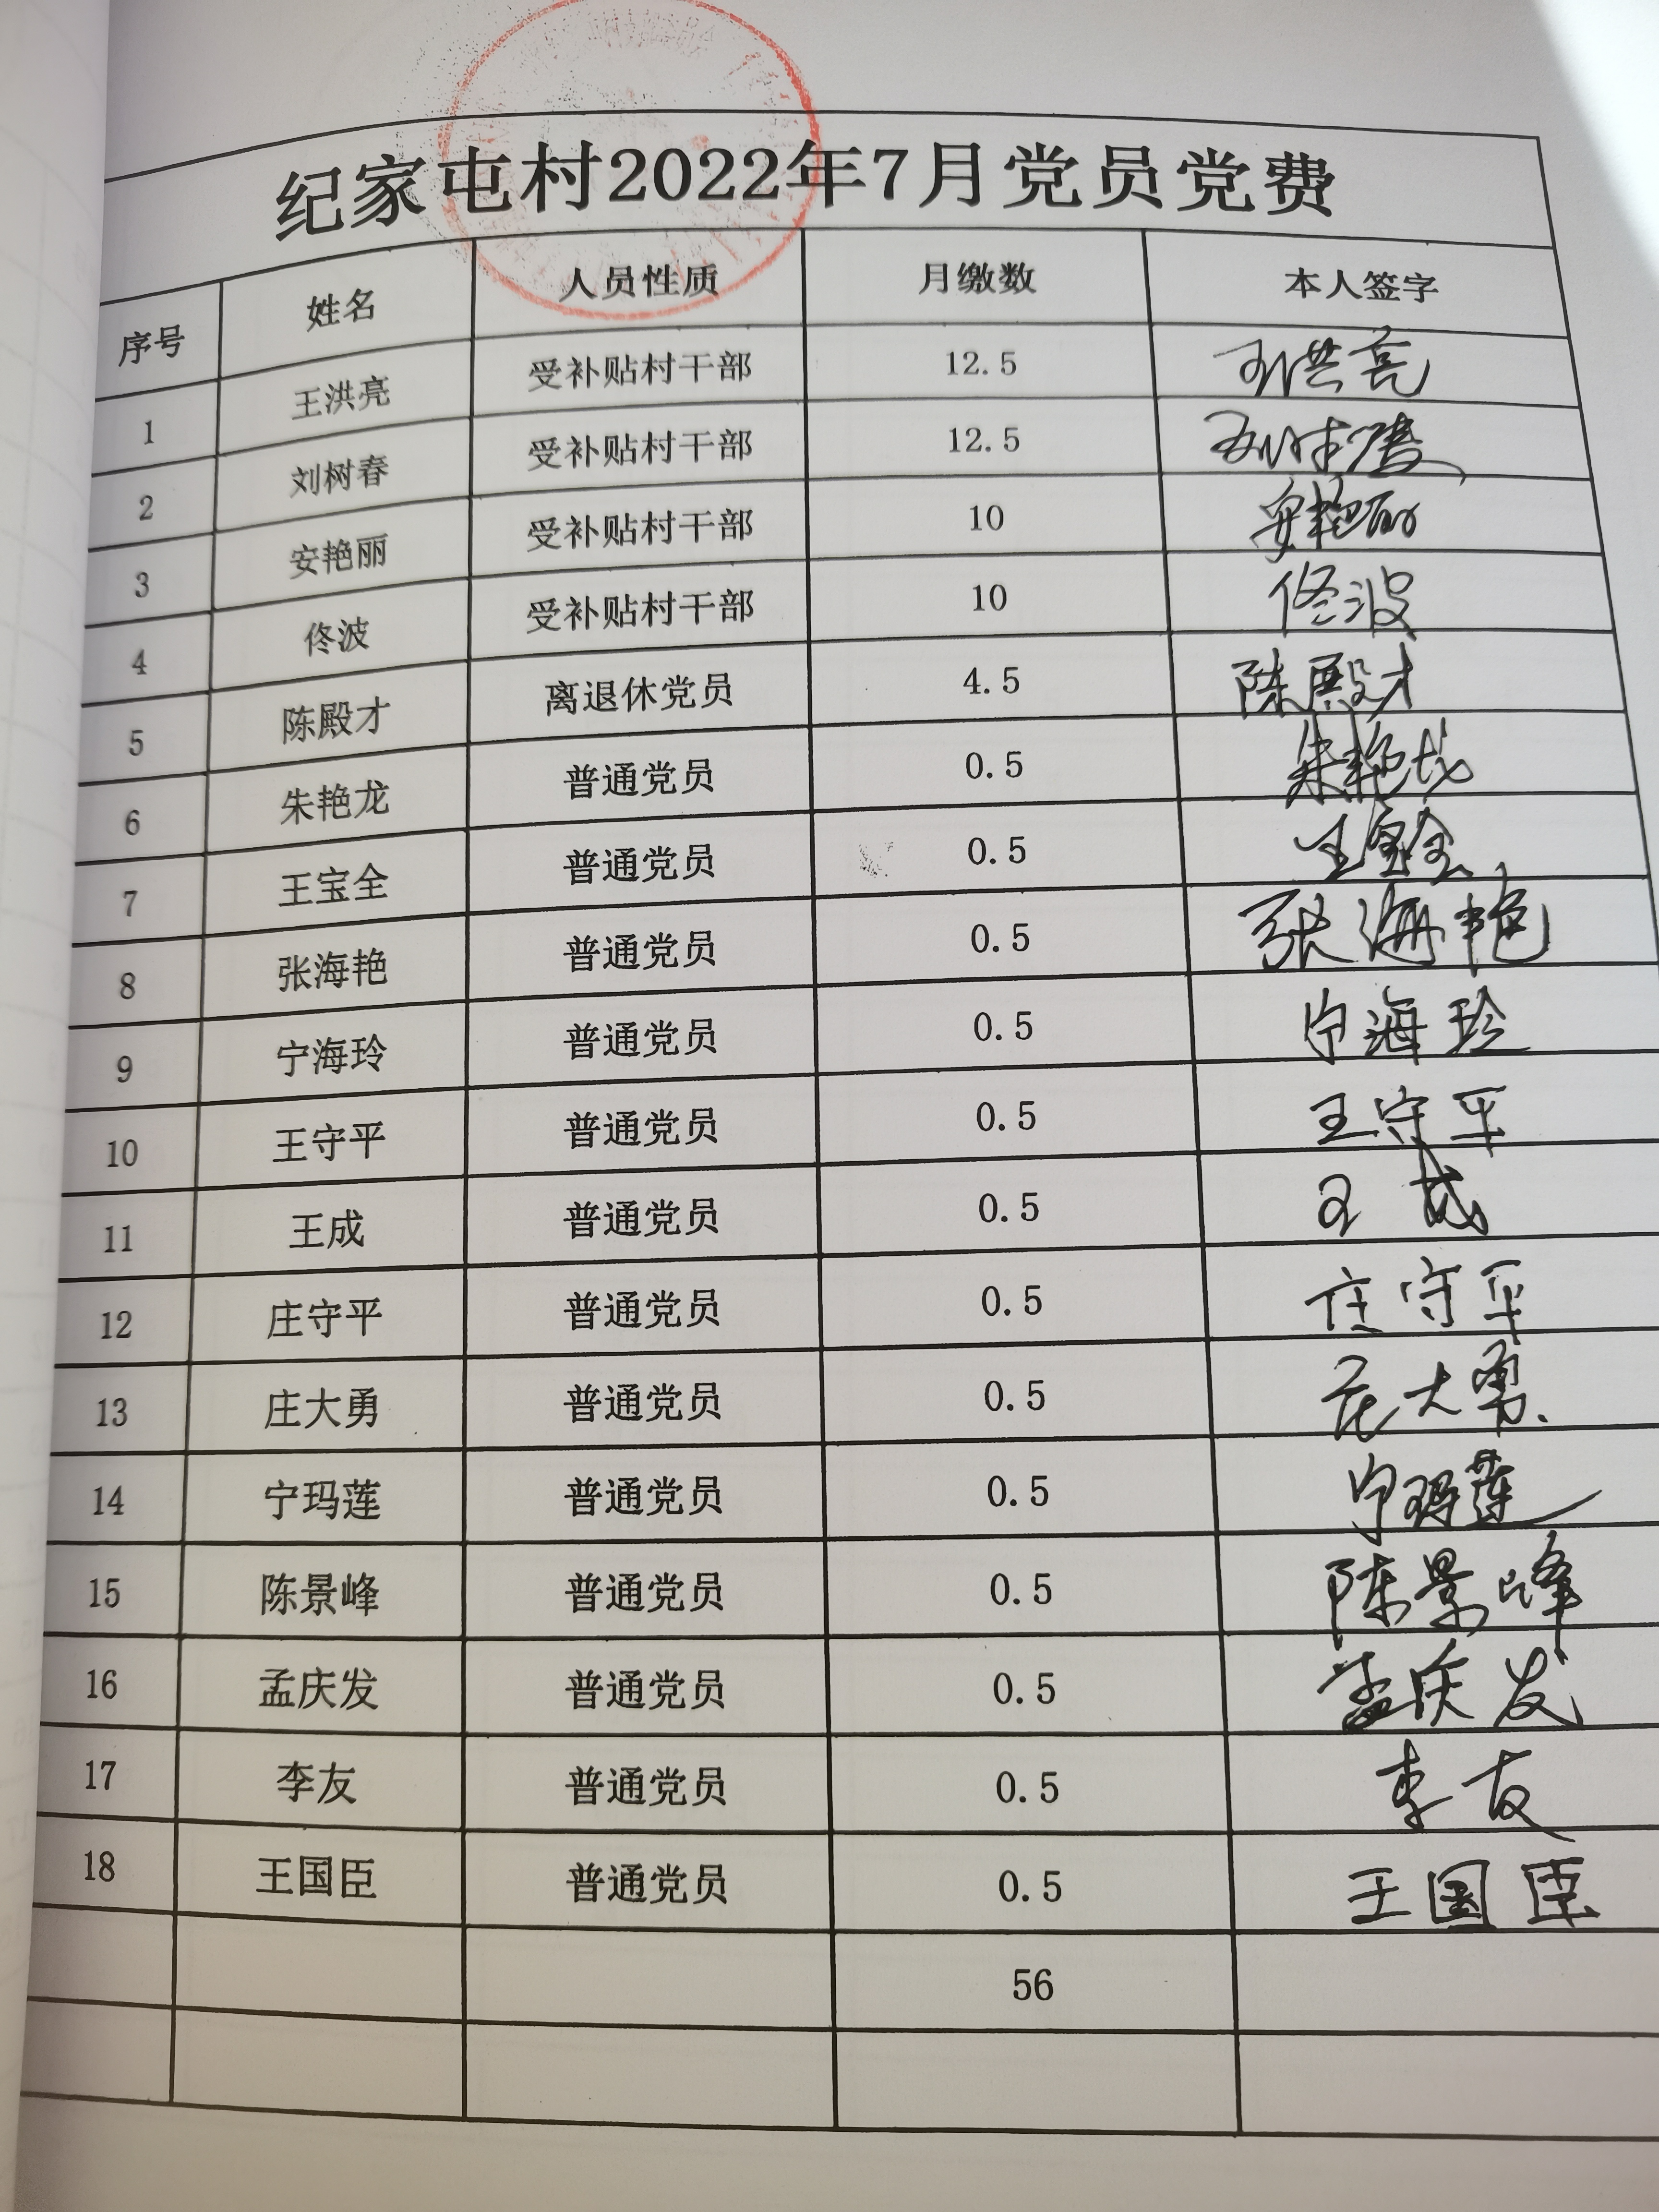 纪家屯村2022年7月党员党费
序号 姓名 人员性质 月缴数 本人签字
1 王洪亮 受补贴村干部 12.5 王洪亮
2 刘树春 受补贴村干部 12.5
3 安艳丽 受补贴村干部 10 安艳丽
4 佟波 受补贴村干部 10 佟波
5 陈殿才 离退休党员 4.5 陈殿才
6 朱艳龙 普通党员 0.5 朱艳龙
7 王宝全 普通党员 0.5 王宝全
8 张海艳 普通党员 0.5 张海艳
9 宁海玲 普通党员 0.5 宁海玲
10 王守平 普通党员 0.5 王守平
11 王成 普通党员 0.5 王成
12 庄守平 普通党员 0.5 庄守平
13 庄大勇 普通党员 0.5 庄大勇
14 宁玛莲 普通党员 0.5 宁玛莲
15 陈景峰 普通党员 0.5 陈景峰
16 孟庆发 普通党员 0.5 孟庆发
17 李友 普通党员 0.5 李友
18 王国臣 普通党员 0.5 王国臣
56